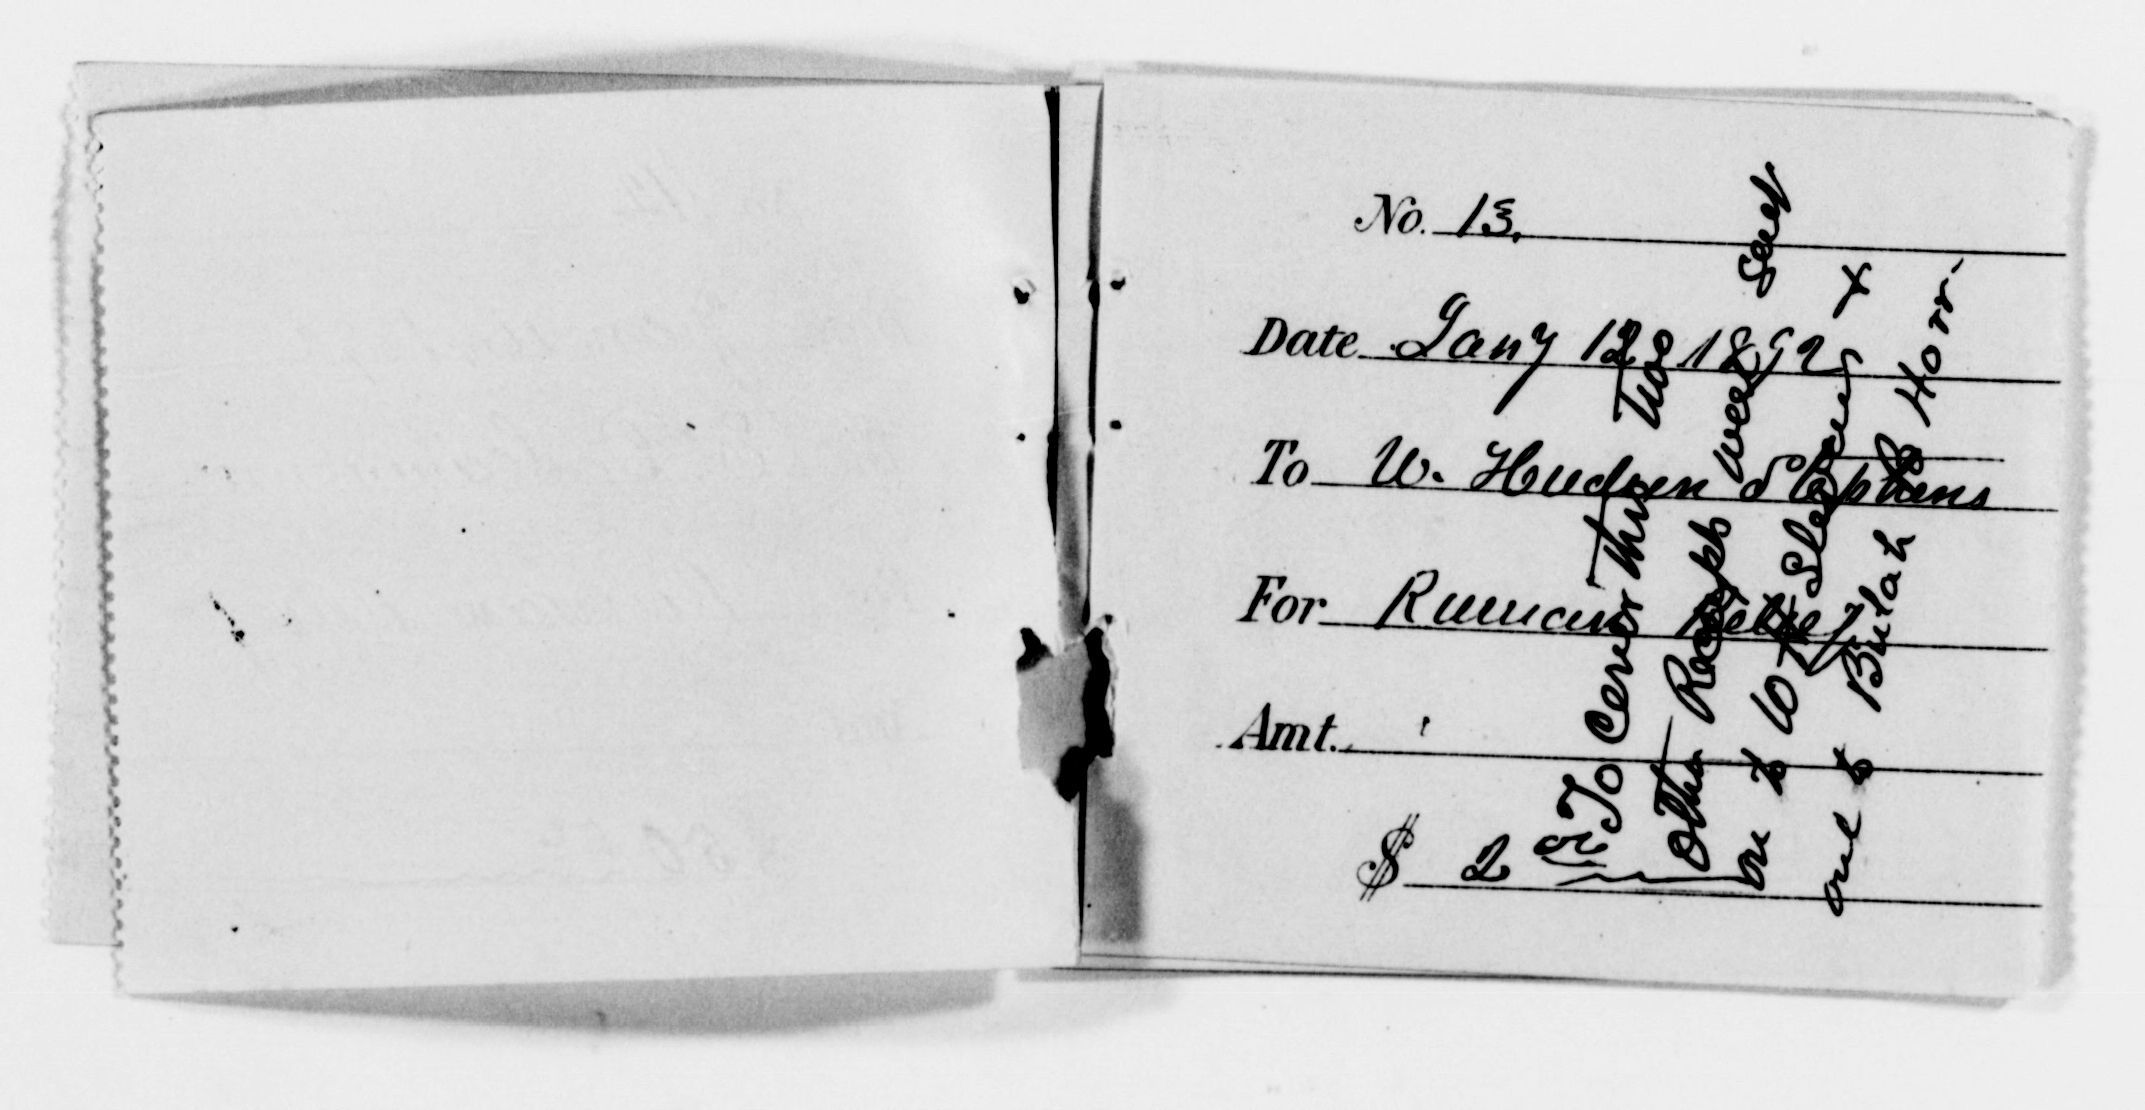 No. 13.
Date Jany 12 1892
To W. Hudson Stephens
For Russian Relief
Amt.
$ 2
To cover this two
other Receipts were sent
one to W. H. Stephens &
one to Bulah Horr.